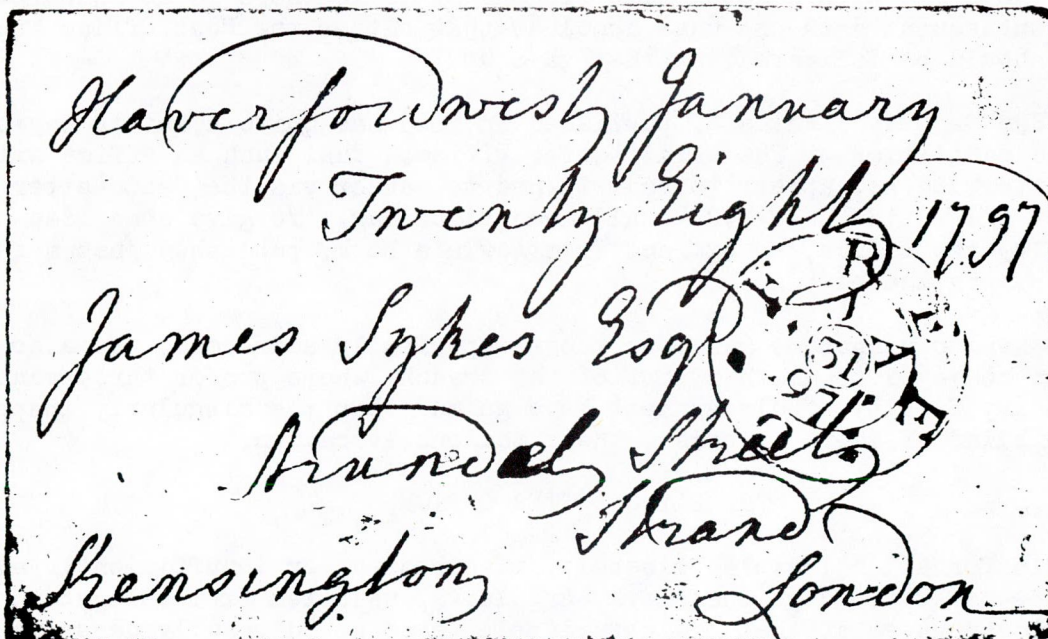 Haverfordwest January
Twenty Eight 1797
James Sykes Esqr.
Arundel Street
Strand
Kensington London
FREE
JA
31
97